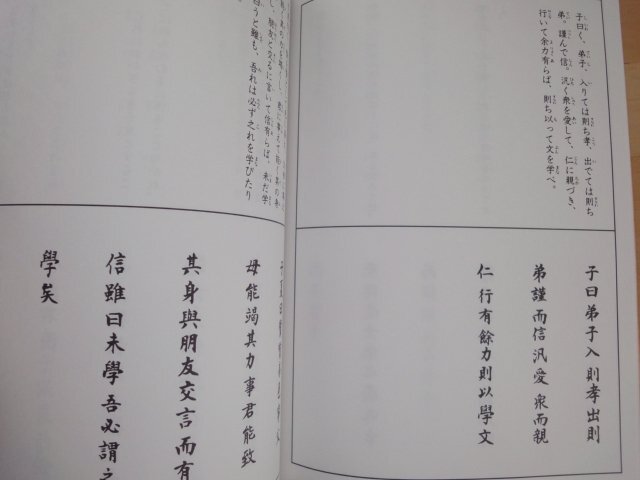 子曰く、弟子、入りては則ち孝、出でては則ち
弟。謹んで信。汎く衆を愛して、仁に親づき、
行いて余力有らば、則ち以って文を学べ。
子曰弟子入則孝出則
弟謹而信汎愛衆而親
仁行有餘力則以學文
朋友と交るに言いて信有らば、未だ学
うと雖も、吾れは必ず之れを学びたり
母能竭其力事君能致
其身與朋友交言而有
信雖曰未學吾必謂之
學矣